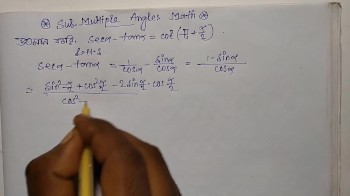 ⊛ Sub. Multiple Angles Math ⊛
প্রমাণ করি, secα - tanα = cot(π/4 + α/2)
L.H.S
secα - tanα = 1/cosα - sinα/cosα = 1 - sinα/cosα
= sin²α/2 + cos²α/2 - 2sinα/2 · cosα/2 / cos²